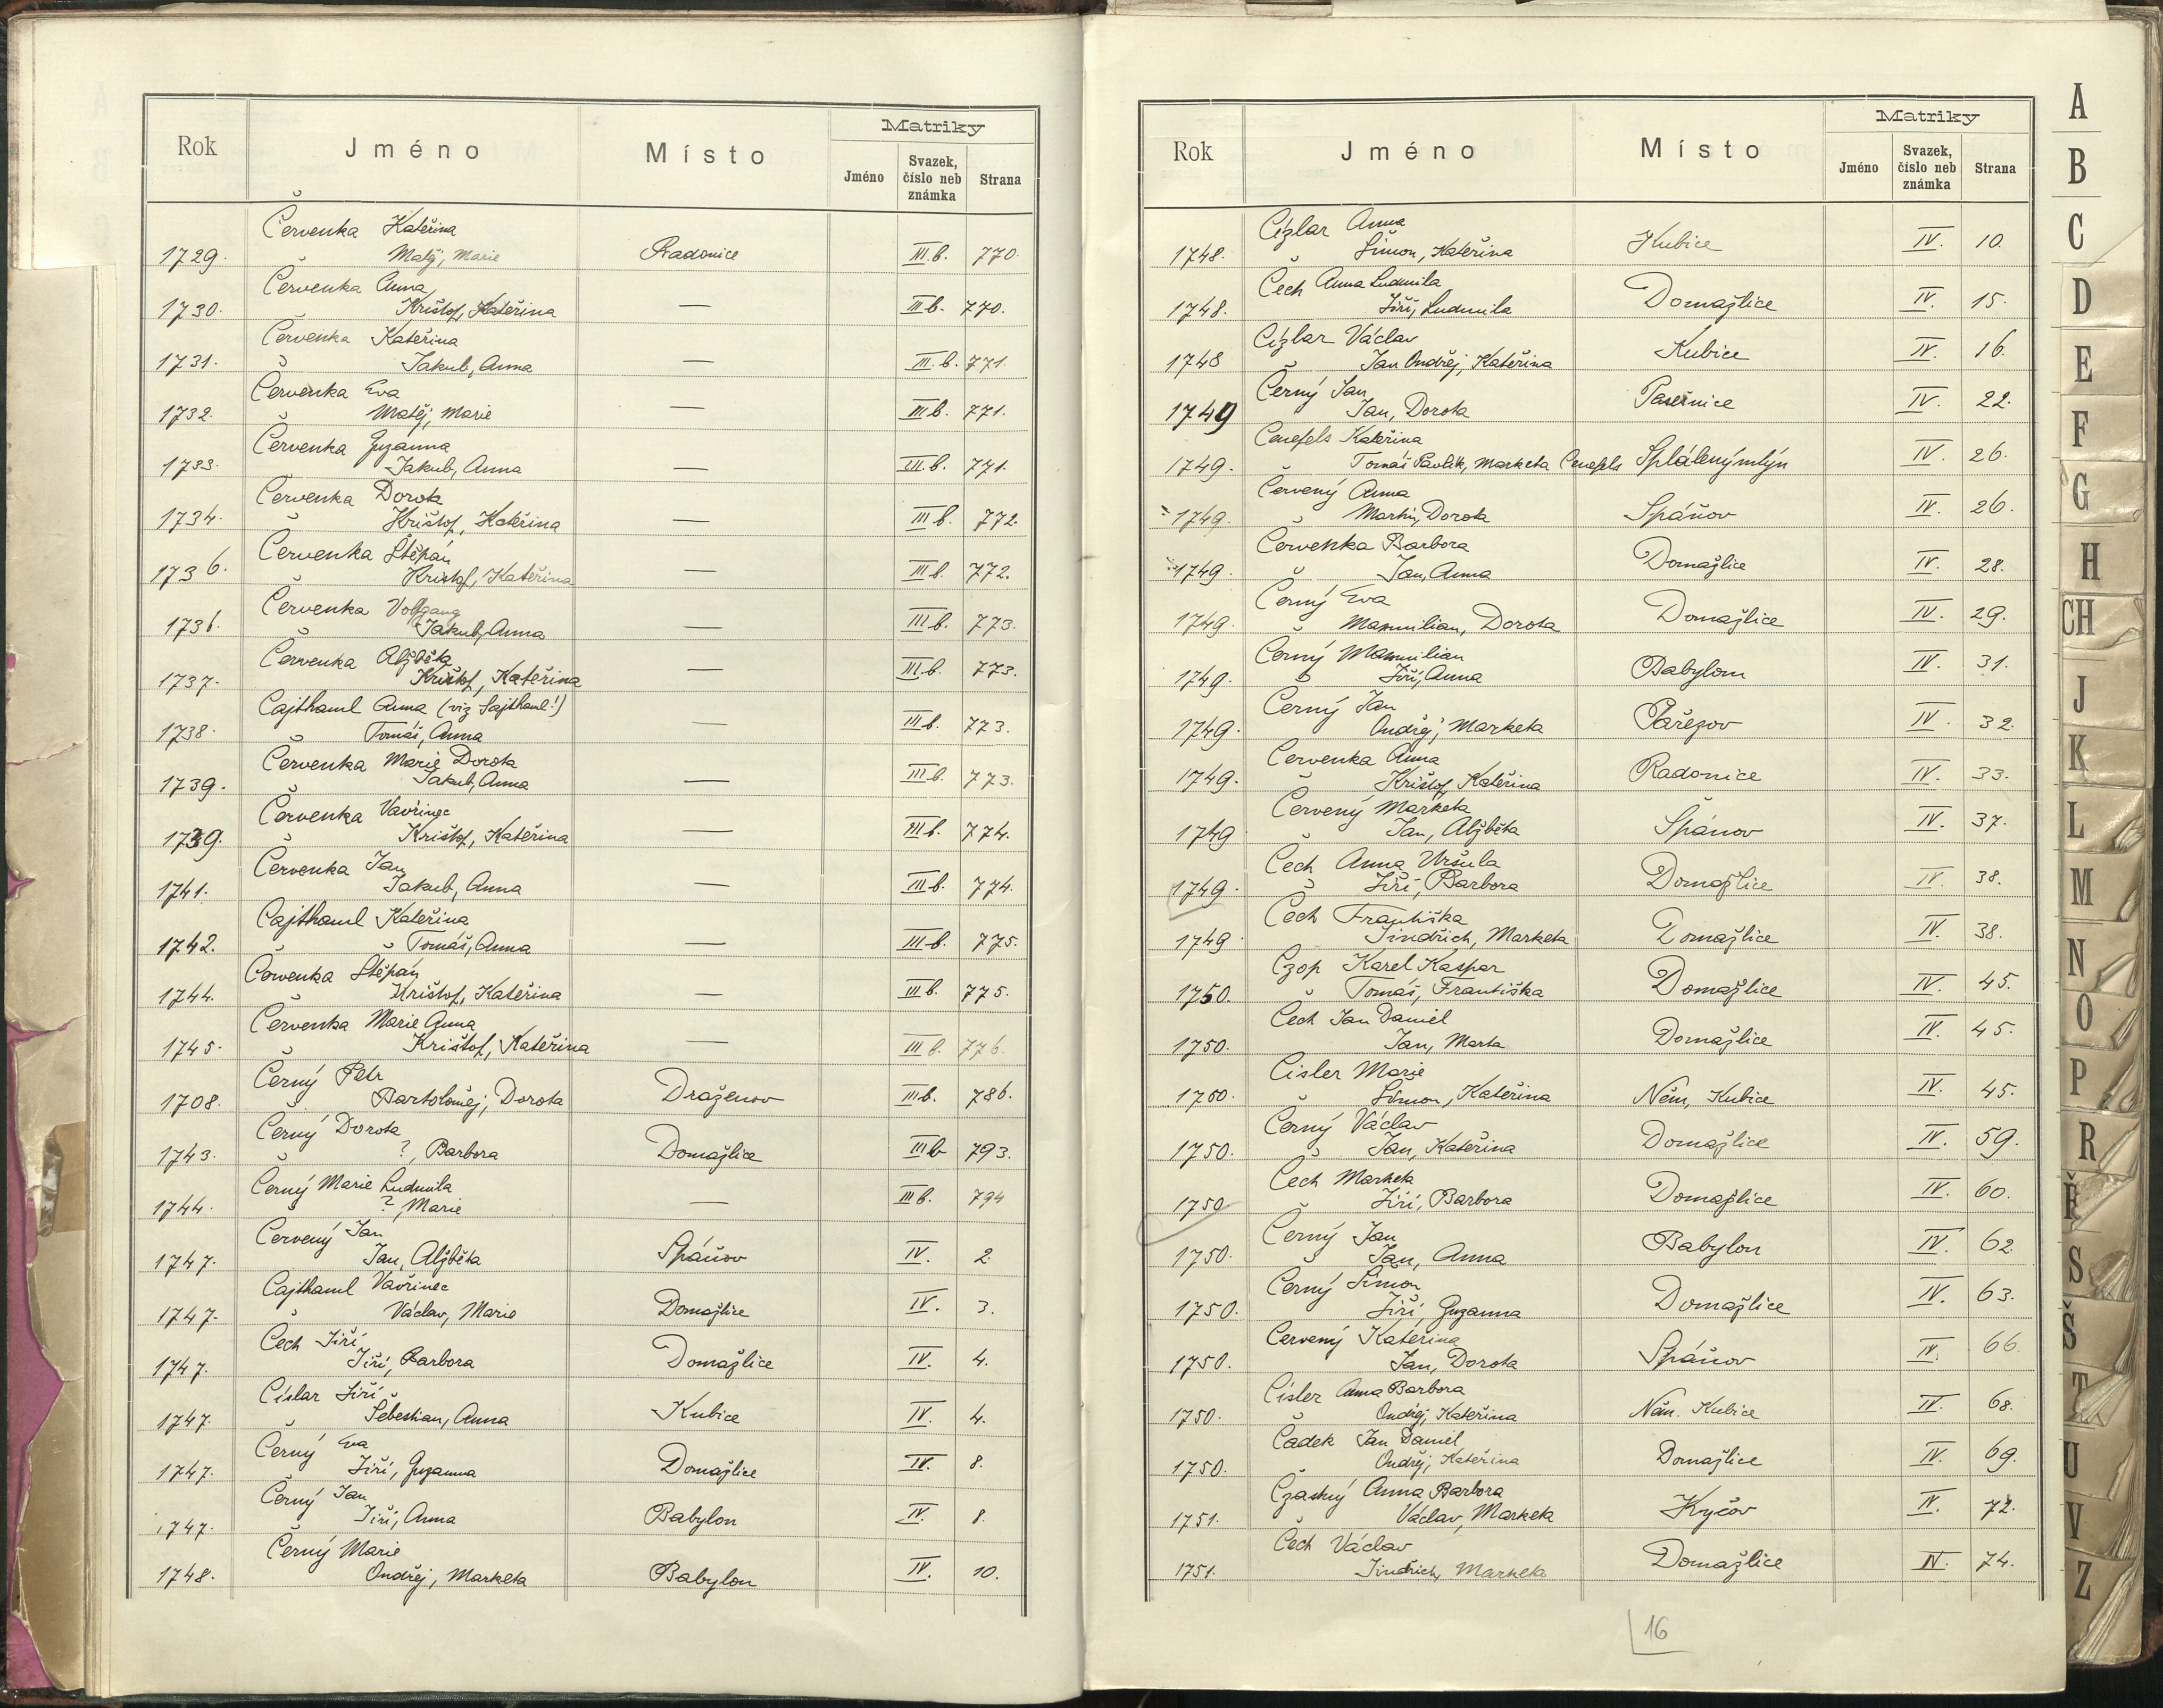 Rok Jméno Místo Matriky
Jméno Svazek, číslo neb známka Strana
Červenka Kateřina
1729. Matěj, Marie Radonice III.b. 770.
Červenka Anna
1730. Krištof, Kateřina — III b. 770.
Červenka Kateřina
1731. Jakub, Anna — III.b. 771.
Červenka Eva
1732. Matěj, Marie — III b. 771.
Červenka Zuzanna
1733. Jakub, Anna — III.b. 771.
Červenka Dorota
1734. Krištof, Kateřina — III b. 772.
Červenka Štěpán
1736. Krištof, Kateřina — III b. 772.
Červenka Volfgang
1736. Jakub, Anna — III b. 773.
Červenka Alžběta
1737. Krištof, Kateřina — III.b. 773.
Cajthaml Anna (viz Sajthaml!)
1738. Tomáš, Anna — III b. 773.
Červenka Marie Dorota
1739. Jakub, Anna — III b. 773.
Červenka Vavřinec
1739. Krištof, Kateřina — III b. 774.
Červenka Jan
1741. Jakub, Anna — III b. 774.
Cajthaml Kateřina
1742. Tomáš, Anna — III b. 775.
Červenka Štěpán
1744. Krištof, Kateřina — III b. 775.
Červenka Marie Anna
1745. Krištof, Kateřina — III b. 776.
Černý Petr
1708. Bartoloměj, Dorota Draženov III b. 786.
Černý Dorota
1743. ?, Barbora Domažlice III b 793.
Černý Marie Ludmila
1744. ?, Marie — III b. 794
Červený Jan
1747. Jan, Alžběta Spáňov IV. 2.
Cajthaml Vavřinec
1747. Václav, Marie Domažlice IV. 3.
Čech Jiří
1747. Jiří, Barbora Domažlice IV. 4.
Císlar Jiří
1747. Šebestian, Anna Kubice IV. 4.
Černý Eva
1747. Jiří, Zuzanna Domažlice IV. 8.
Černý Jan
1747. Jiří, Anna Babylon IV. 8.
Černý Marie
1748. Ondřej, Marketa Babylon IV. 10.
Rok Jméno Místo Matriky
Jméno Svazek, číslo neb známka Strana
Cizlar Anna
1748. Šimon, Kateřina Kubice IV. 10.
Čech Anna Ludmila
1748. Jiří, Ludmila Domažlice IV. 15.
Cizlar Václav
1748 Jan Ondřej, Kateřina Kubice IV. 16.
Černý Jan
1749 Jan, Dorota Pasešnice IV. 22.
Cenefels Kateřina
1749. Tomáš Pavlík, Marketa Cenefels Spálenýmlýn IV. 26.
Červený Anna
1749. Martin, Dorota Spáňov IV. 26.
Červenka Barbora
1749. Jan, Anna Domažlice IV. 28.
Černý Eva
1749. Maxmilian, Dorota Domažlice IV. 29.
Černý Maxmilian
1749. Jiří, Anna Babylon IV. 31.
Černý Jan
1749. Ondřej, Marketa Pařezov IV. 32.
Červenka Anna
1749. Krištof, Kateřina Radonice IV. 33.
Červený Marketa
1749 Jan, Alžběta Spánov IV. 37.
Čech Anna Uršula
1749. Jiří, Barbora Domažlice IV. 38.
Čech Františka
1749. Jindřich, Marketa Domažlice IV. 38.
Czop Karel Kašpar
1750. Tomáš, Františka Domažlice IV. 45.
Čech Jan Daniel
1750. Jan, Marta Domažlice IV. 45.
Cisler Marie
1750. Šimon, Kateřina Něm. Kubice IV. 45.
Černý Václav
1750. Jan, Kateřina Domažlice IV. 59.
Čech Marketa
1750 Jiří, Barbora Domažlice IV. 60.
Černý Jan
1750. Jan, Anna Babylon IV. 62.
Černý Šimon
1750. Jiří, Zuzanna Domažlice IV. 63.
Červený Kateřina
1750. Jan, Dorota Spáňov IV. 66.
Císler Anna Barbora
1750. Ondřej, Kateřina Něm. Kubice IV. 68.
Čadek Jan Daniel
1750. Ondřej, Kateřina Domažlice IV. 69.
Czastný Anna Barbora
1751. Václav, Marketa Kyčov IV. 72.
Čech Václav
1751. Jindřich, Marketa Domažlice IV. 74.
16
A
B
C
D
E
F
G
H
CH
J
K
L
M
N
O
P
R
Ř
S
Š
T
U
V
Z